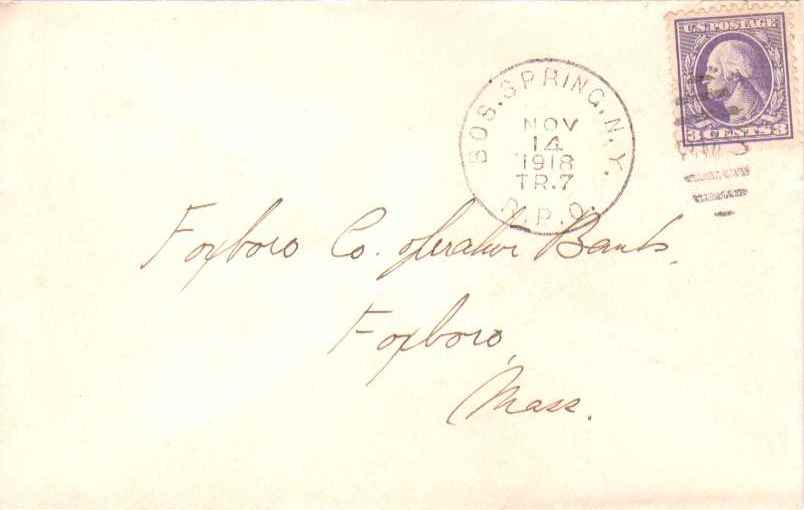 U.S. POSTAGE
3 CENTS 3
BOS. SPRING. N.Y.
NOV
14
1918
TR.7
R.P.O.
Foxboro Co. operative Bank,
Foxboro,
Mass.